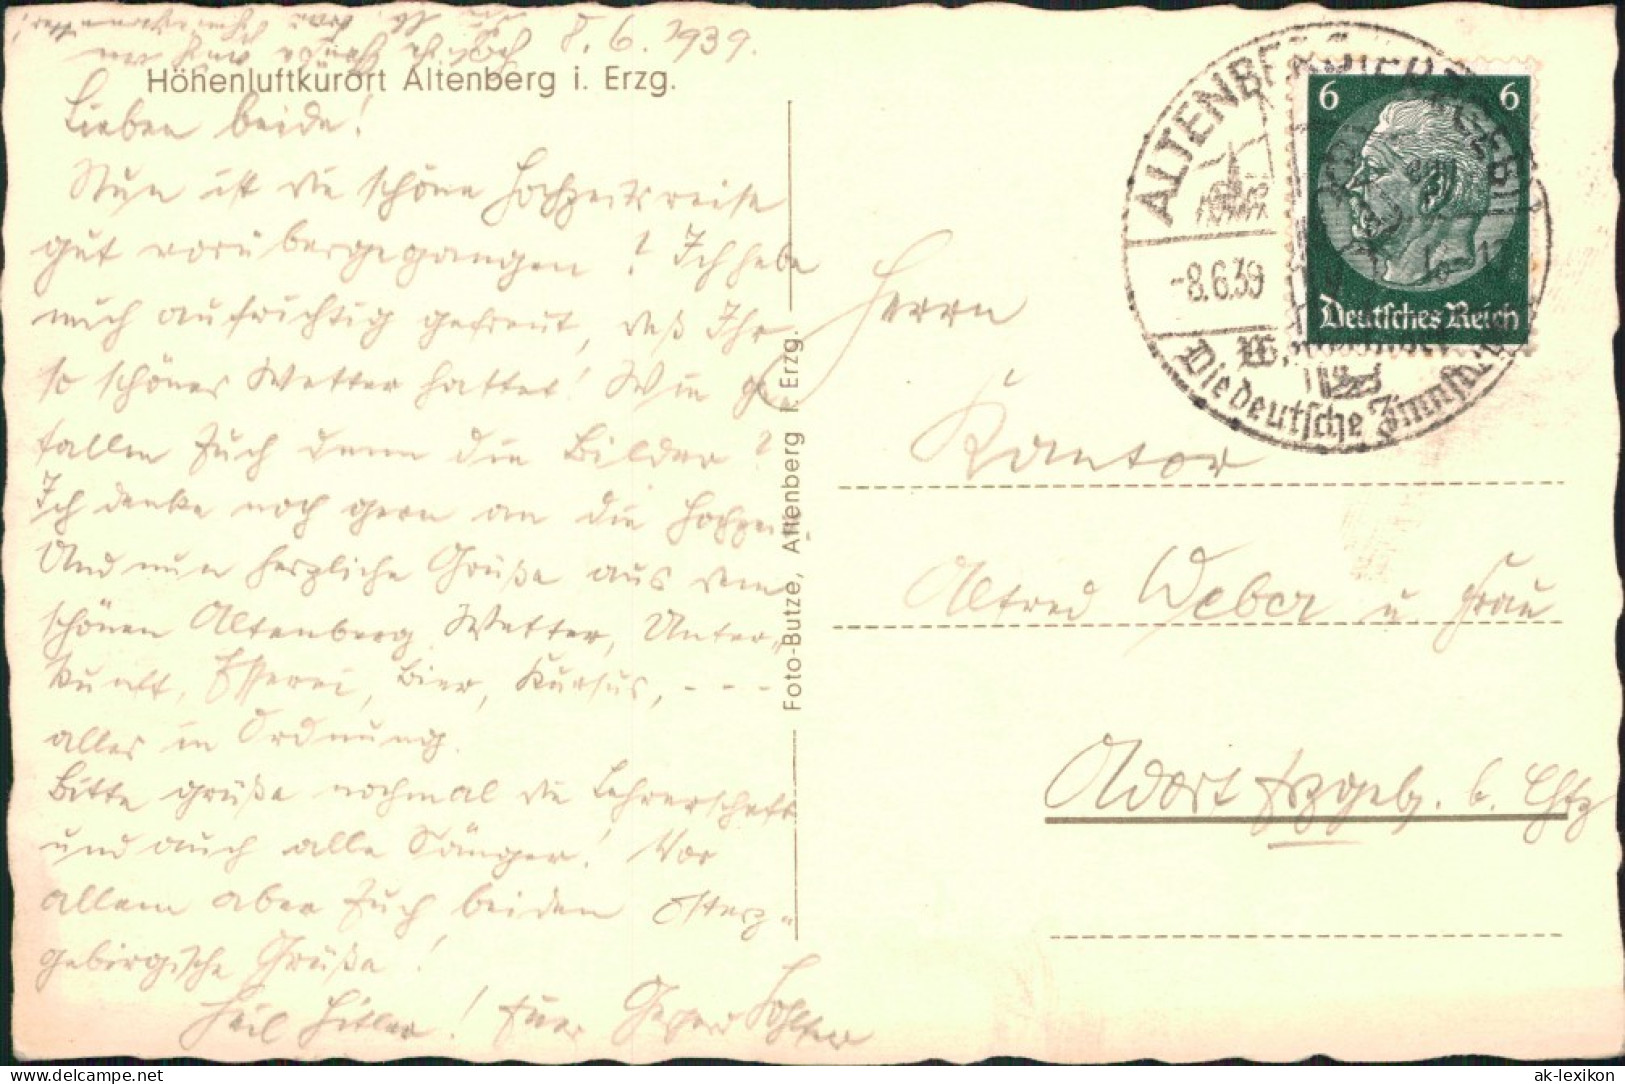 8. 6. 1939.
Höhenluftkurort Altenberg i. Erzg.
Lieben beide!
Nun ist die schöne Hochzeitsreise
gut vorübergegangen? Ich habe
mich aufrichtig gefreut, daß Ihr
so schönes Wetter hattet! Wie ge
fallen Euch denn die Bilder?
Ich denke noch gern an die Hochzeit.
Und nun herzliche Grüße aus dem
schönen Altenberg. Wetter, Unter-
kunft, Esserei, Bier, Kursus, - - -
alles in Ordnung.
Bitte grüße nochmal die Lehrerschaft
und auch alle Sänger! Vor
allem aber Euch beiden osterz-
gebirgische Grüße!
Heil Hitler! Euer
Foto-Butze, Altenberg i. Erzg.
ALTENBERG (ERZGEB)
-8.6.39
Die deutsche
6 6
Deutsches Reich
Herrn
Kantor
Alfred Weber u. Frau
Adorf Erzgeb. b. Chtz
ak-lexikon